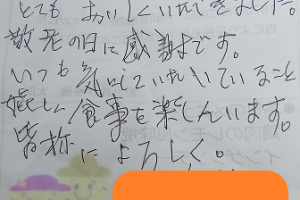 とても おいしくいただきました。
敬老の日に感謝です。
いつも気にしていただいていること
嬉しく食事を楽しんいます。
皆称によろしく。